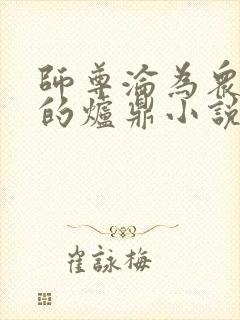 師尊淪為眾
的爐鼎小說
崔詠梅